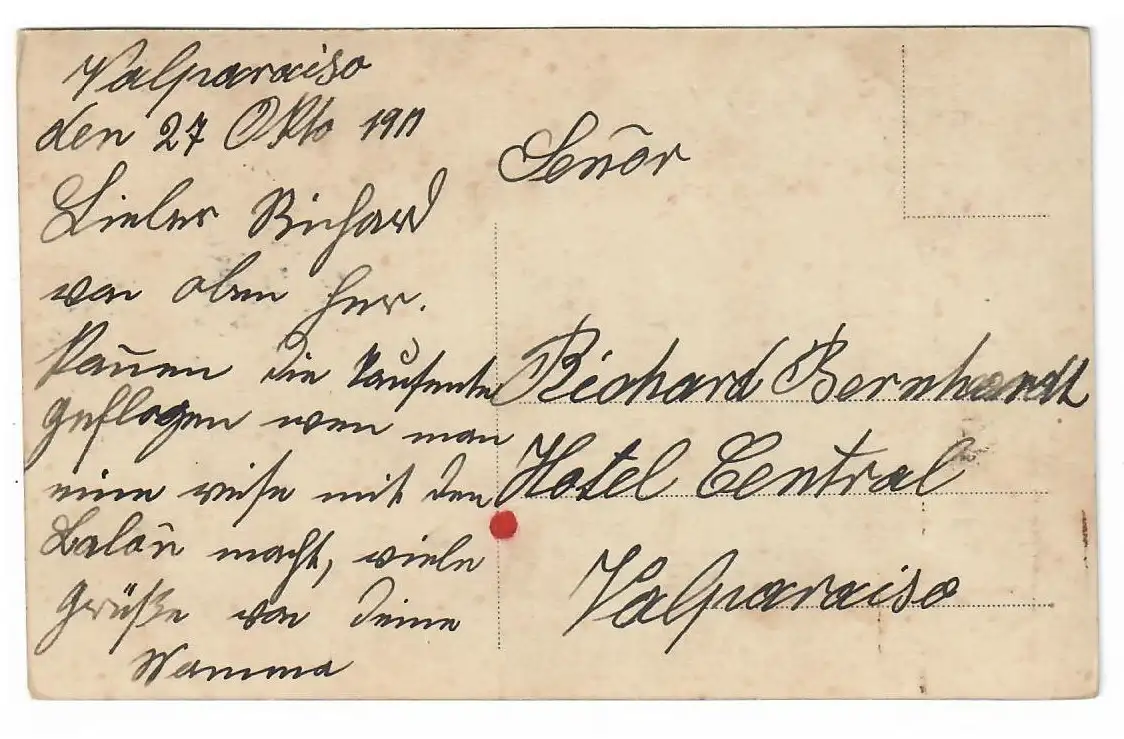 Valparaiso
den 27 Okto 1911
Lieber Richard
von oben her.
die tausente
geflogen wen man
eine reise mit den
Balon macht, viele
Grüße von deine
Mamma
Señor
Richard Bernhardt
Hotel Central
Valparaiso